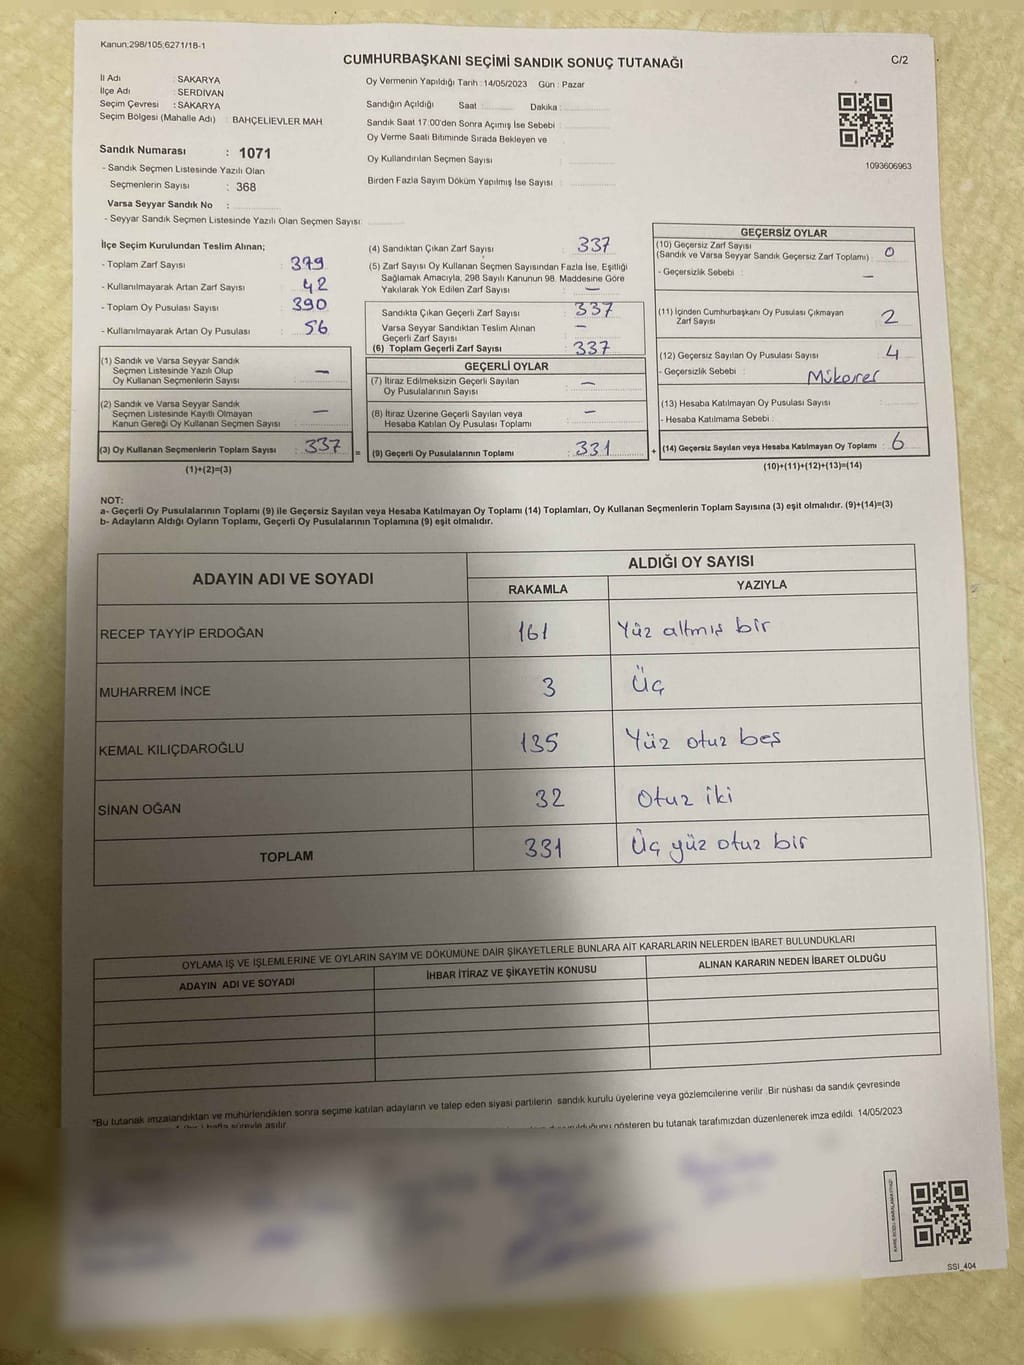 Kanun;298/105;6271/18-1
CUMHURBAŞKANI SEÇİMİ SANDIK SONUÇ TUTANAĞI
C/2
İl Adı : SAKARYA
İlçe Adı : SERDİVAN
Seçim Çevresi : SAKARYA
Seçim Bölgesi (Mahalle Adı) : BAHÇELİEVLER MAH
Sandık Numarası : 1071
- Sandık Seçmen Listesinde Yazılı Olan
Seçmenlerin Sayısı : 368
Varsa Seyyar Sandık No :
- Seyyar Sandık Seçmen Listesinde Yazılı Olan Seçmen Sayısı:
Oy Vermenin Yapıldığı Tarih : 14/05/2023 Gün : Pazar
Sandığın Açıldığı Saat : Dakika :
Sandık Saat 17:00'den Sonra Açımış İse Sebebi :
Oy Verme Saati Bitiminde Sırada Bekleyen ve
Oy Kullandırılan Seçmen Sayısı :
Birden Fazla Sayım Döküm Yapılmış İse Sayısı :
1093606963
İlçe Seçim Kurulundan Teslim Alınan;
- Toplam Zarf Sayısı : 379
- Kullanılmayarak Artan Zarf Sayısı : 42
- Toplam Oy Pusulası Sayısı : 390
- Kullanılmayarak Artan Oy Pusulası : 56
(1) Sandık ve Varsa Seyyar Sandık
Seçmen Listesinde Yazılı Olup
Oy Kullanan Seçmenlerin Sayısı : —
(2) Sandık ve Varsa Seyyar Sandık
Seçmen Listesinde Kayıtlı Olmayan
Kanun Gereği Oy Kullanan Seçmen Sayısı : —
(3) Oy Kullanan Seçmenlerin Toplam Sayısı : 337 =
(1)+(2)=(3)
(4) Sandıktan Çıkan Zarf Sayısı : 337
(5) Zarf Sayısı Oy Kullanan Seçmen Sayısından Fazla İse, Eşitliği
Sağlamak Amacıyla, 298 Sayılı Kanunun 98. Maddesine Göre
Yakılarak Yok Edilen Zarf Sayısı : —
Sandıkta Çıkan Geçerli Zarf Sayısı : 337
Varsa Seyyar Sandıktan Teslim Alınan
Geçerli Zarf Sayısı : —
(6) Toplam Geçerli Zarf Sayısı : 337
GEÇERLİ OYLAR
(7) İtiraz Edilmeksizin Geçerli Sayılan
Oy Pusulalarının Sayısı : —
(8) İtiraz Üzerine Geçerli Sayılan veya
Hesaba Katılan Oy Pusulası Toplamı : —
(9) Geçerli Oy Pusulalarının Toplamı : 331 +
GEÇERSİZ OYLAR
(10) Geçersiz Zarf Sayısı
(Sandık ve Varsa Seyyar Sandık Geçersiz Zarf Toplamı) : 0
- Geçersizlik Sebebi : —
(11) İçinden Cumhurbaşkanı Oy Pusulası Çıkmayan
Zarf Sayısı : 2
(12) Geçersiz Sayılan Oy Pusulası Sayısı : 4
- Geçersizlik Sebebi : Mükerrer
(13) Hesaba Katılmayan Oy Pusulası Sayısı :
- Hesaba Katılmama Sebebi :
(14) Geçersiz Sayılan veya Hesaba Katılmayan Oy Toplamı : 6
(10)+(11)+(12)+(13)=(14)
NOT:
a- Geçerli Oy Pusulalarının Toplamı (9) ile Geçersiz Sayılan veya Hesaba Katılmayan Oy Toplamı (14) Toplamları, Oy Kullanan Seçmenlerin Toplam Sayısına (3) eşit olmalıdır. (9)+(14)=(3)
b- Adayların Aldığı Oyların Toplamı, Geçerli Oy Pusulalarının Toplamına (9) eşit olmalıdır.
ADAYIN ADI VE SOYADI
ALDIĞI OY SAYISI
RAKAMLA YAZIYLA
RECEP TAYYİP ERDOĞAN 161 Yüz altmış bir
MUHARREM İNCE 3 Üç
KEMAL KILIÇDAROĞLU 135 Yüz otuz beş
SİNAN OĞAN 32 Otuz iki
TOPLAM 331 Üç yüz otuz bir
OYLAMA İŞ VE İŞLEMLERİNE VE OYLARIN SAYIM VE DÖKÜMÜNE DAİR ŞİKAYETLERLE BUNLARA AİT KARARLARIN NELERDEN İBARET BULUNDUKLARI
ADAYIN ADI VE SOYADI İHBAR İTİRAZ VE ŞİKAYETİN KONUSU ALINAN KARARIN NEDEN İBARET OLDUĞU
*Bu tutanak imzalandıktan ve mühürlendikten sonra seçime katılan adayların ve talep eden siyasi partilerin sandık kurulu üyelerine veya gözlemcilerine verilir. Bir nüshası da sandık çevresinde
hafta süreyle asılır. gösteren bu tutanak tarafımızdan düzenlenerek imza edildi. 14/05/2023
SSI_404